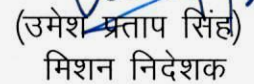 (उमेश प्रताप सिंह)
मिशन निदेशक